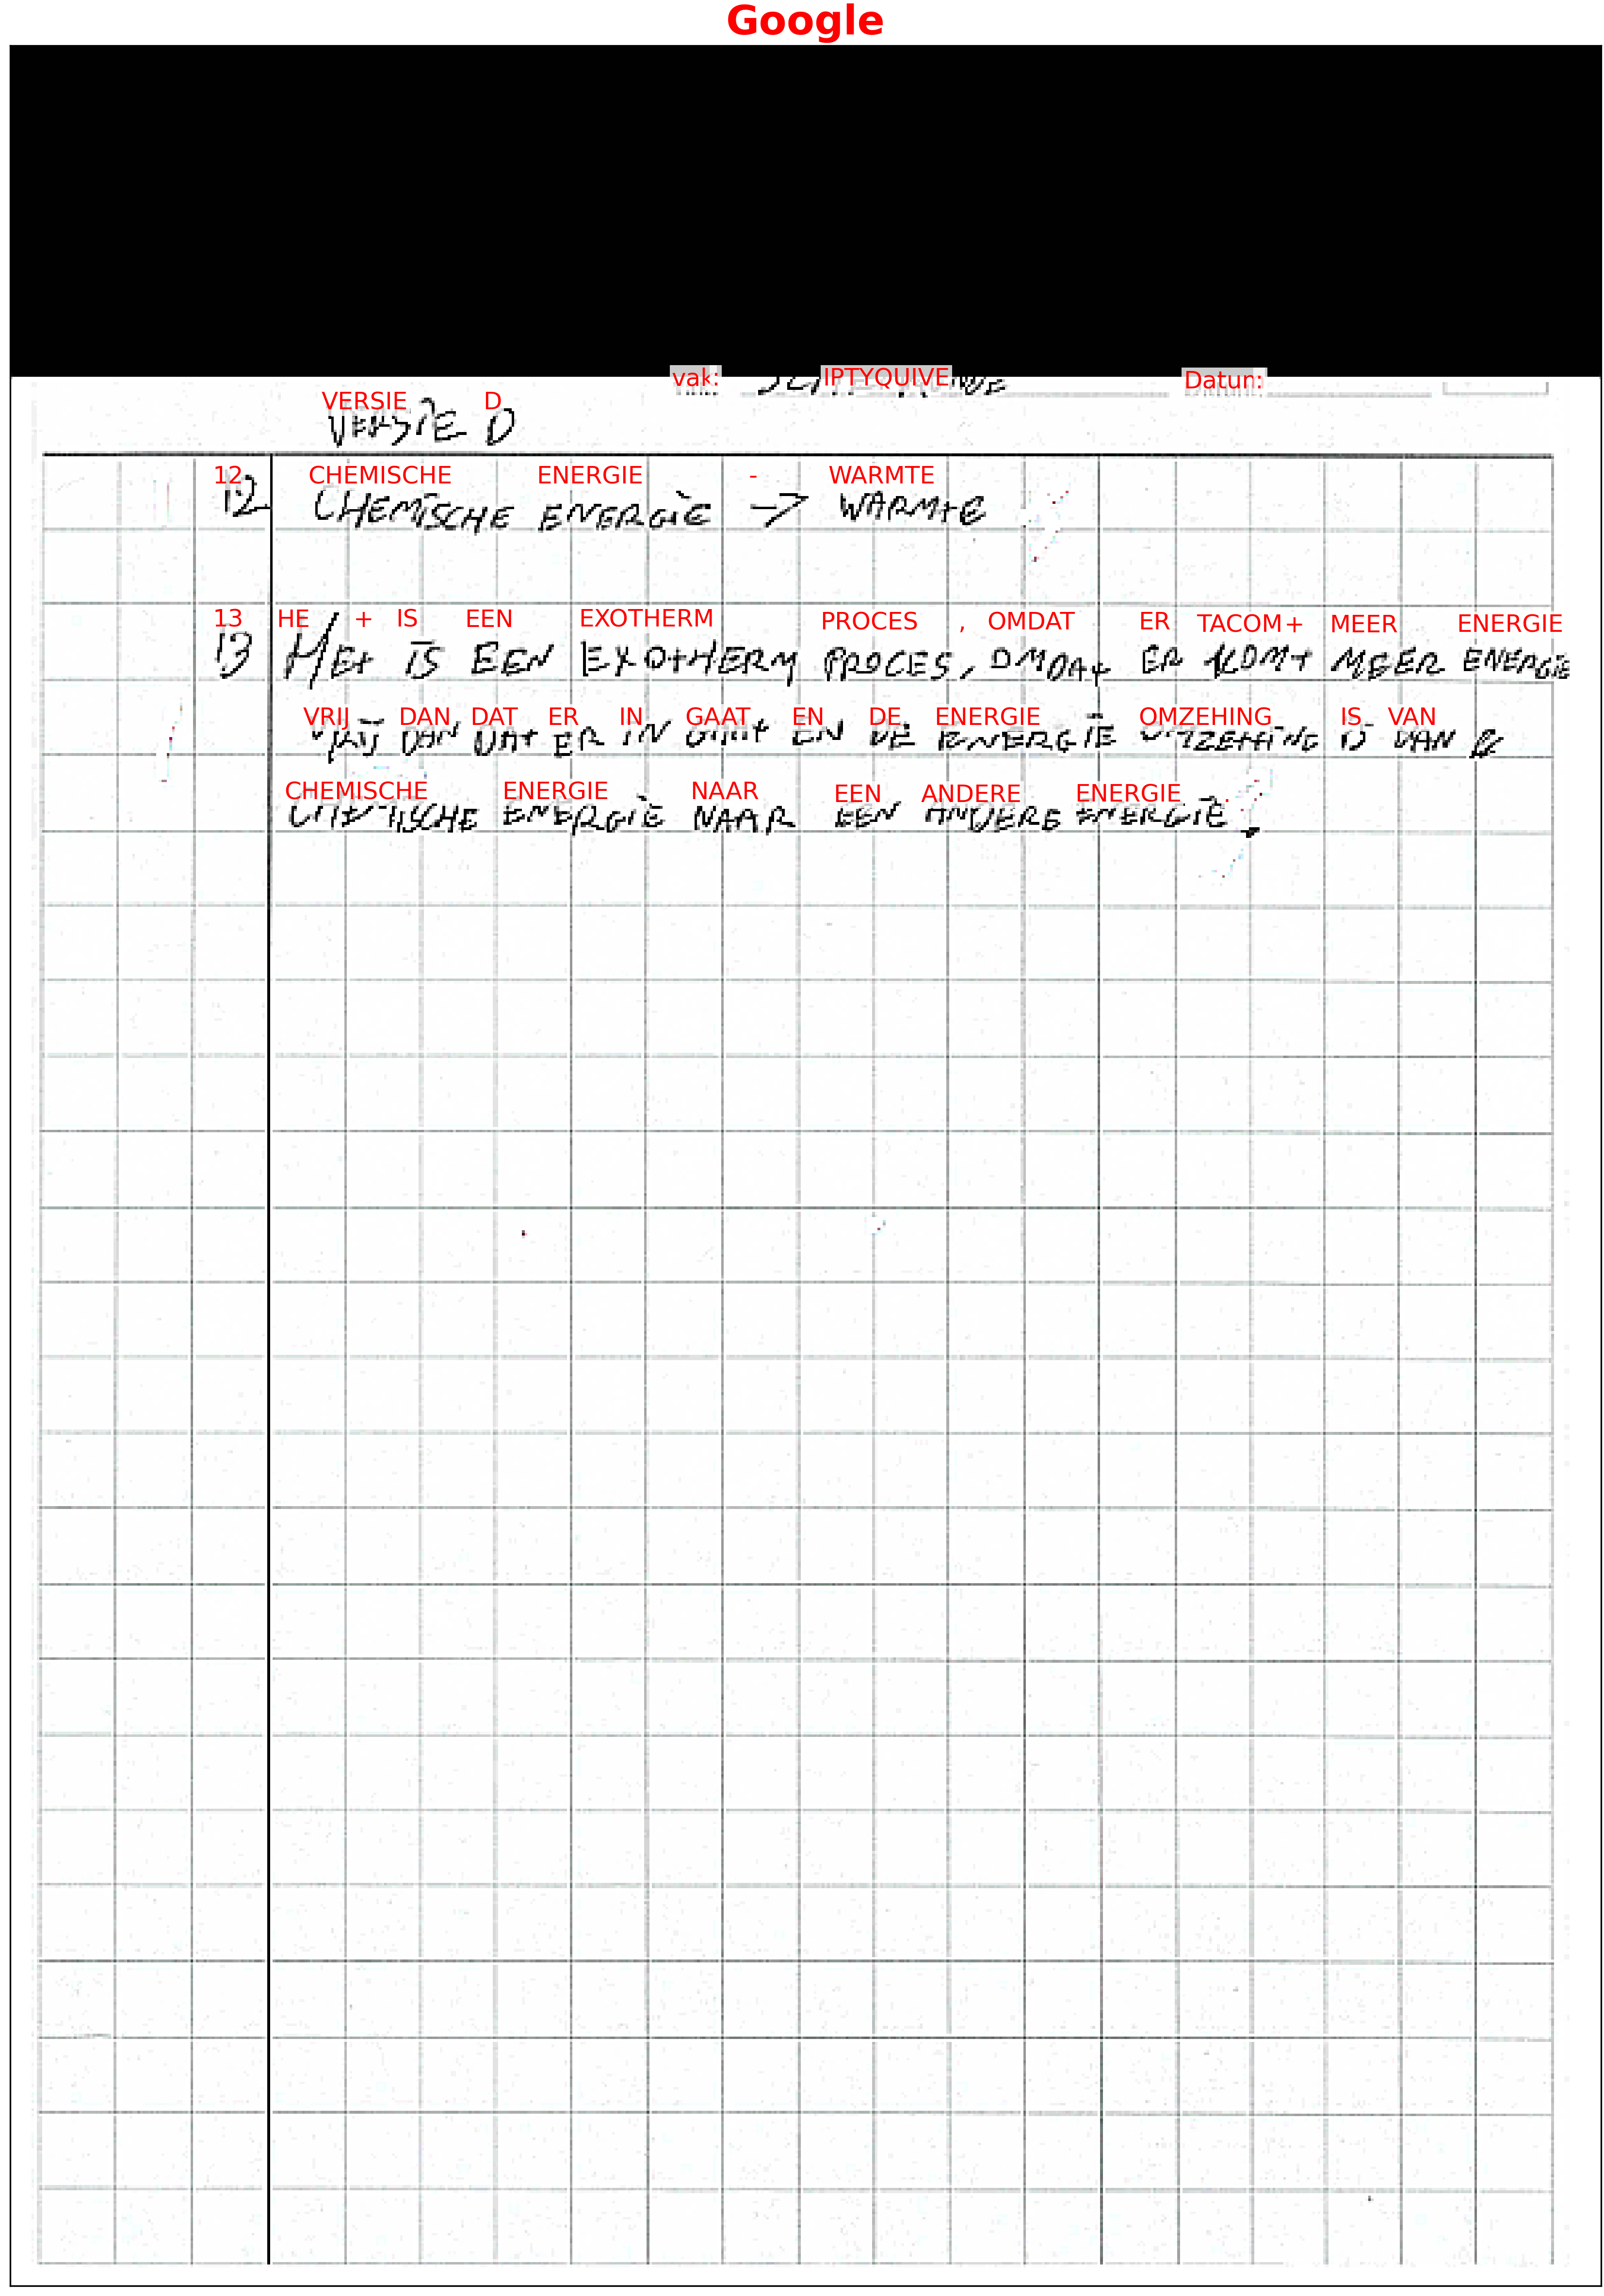 Google
vak: IPTYQUIVE Datun:
VERSIE D
VERSIE D
12 CHEMISCHE ENERGIE - WARMTE
12 CHEMISCHE ENERGIE → WARMTE
13 HE + IS EEN EXOTHERM PROCES , OMDAT ER TACOM+ MEER ENERGIE
13 HEt IS EEN EXOtHERM PROCES, OMDAt ER KOMt MEER ENERGIE
VRIJ DAN DAT ER IN GAAT EN DE ENERGIE OMZEHING IS VAN
VRIJ DAN DAt ER IN GAAt EN DE ENERGIE OMZETTING IS VAN
CHEMISCHE ENERGIE NAAR EEN ANDERE ENERGIE
CHEMISCHE ENERGIE NAAR EEN ANDERE ENERGIE.